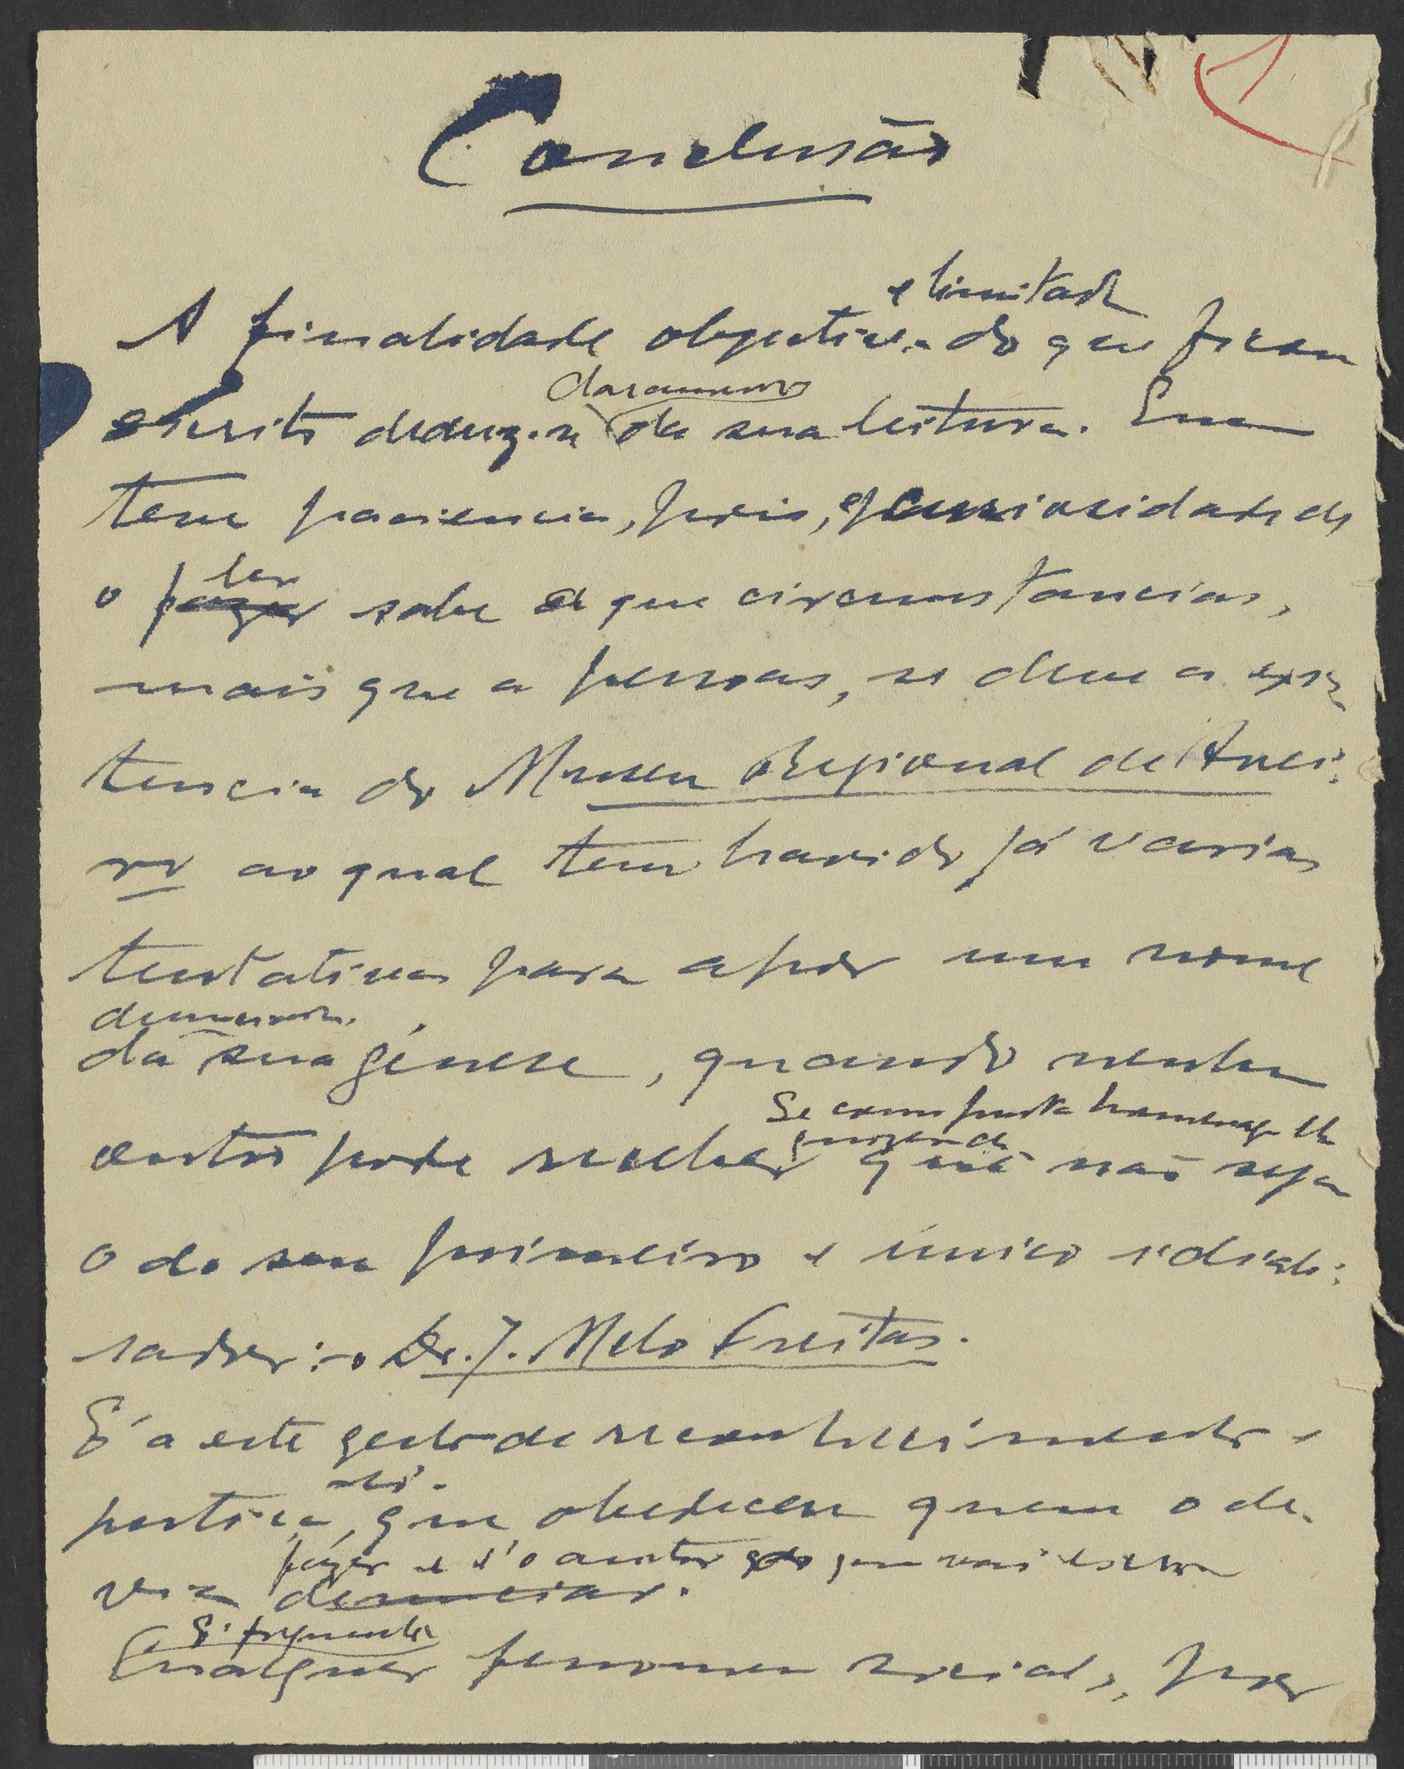 1
Conclusão
e limitada
A finalidade objectiva do que ficou
claramente
escrito deduz-se da sua leitura. Quem
teve paciencia, pois, e curiosidade de
ler
o fazer sabe a que circunstancias,
mais que a pessoas, se deve a exis-
tencia do Museu Regional de Avei-
ro ao qual tem havido já varias
tentativas para apôr um nome
da sua génese, quando nenhum
se com justa homenagem
outro pode receber que não seja
o do seu primeiro e único idiali-
sador: o Dr. J. Melo Freitas.
É a este gesto de reconhecimento e
justiça, que obedeceu quem o de-
fazer e é o autor do que
via denunciar.
É frequente
Qualquer fenomeno social, por